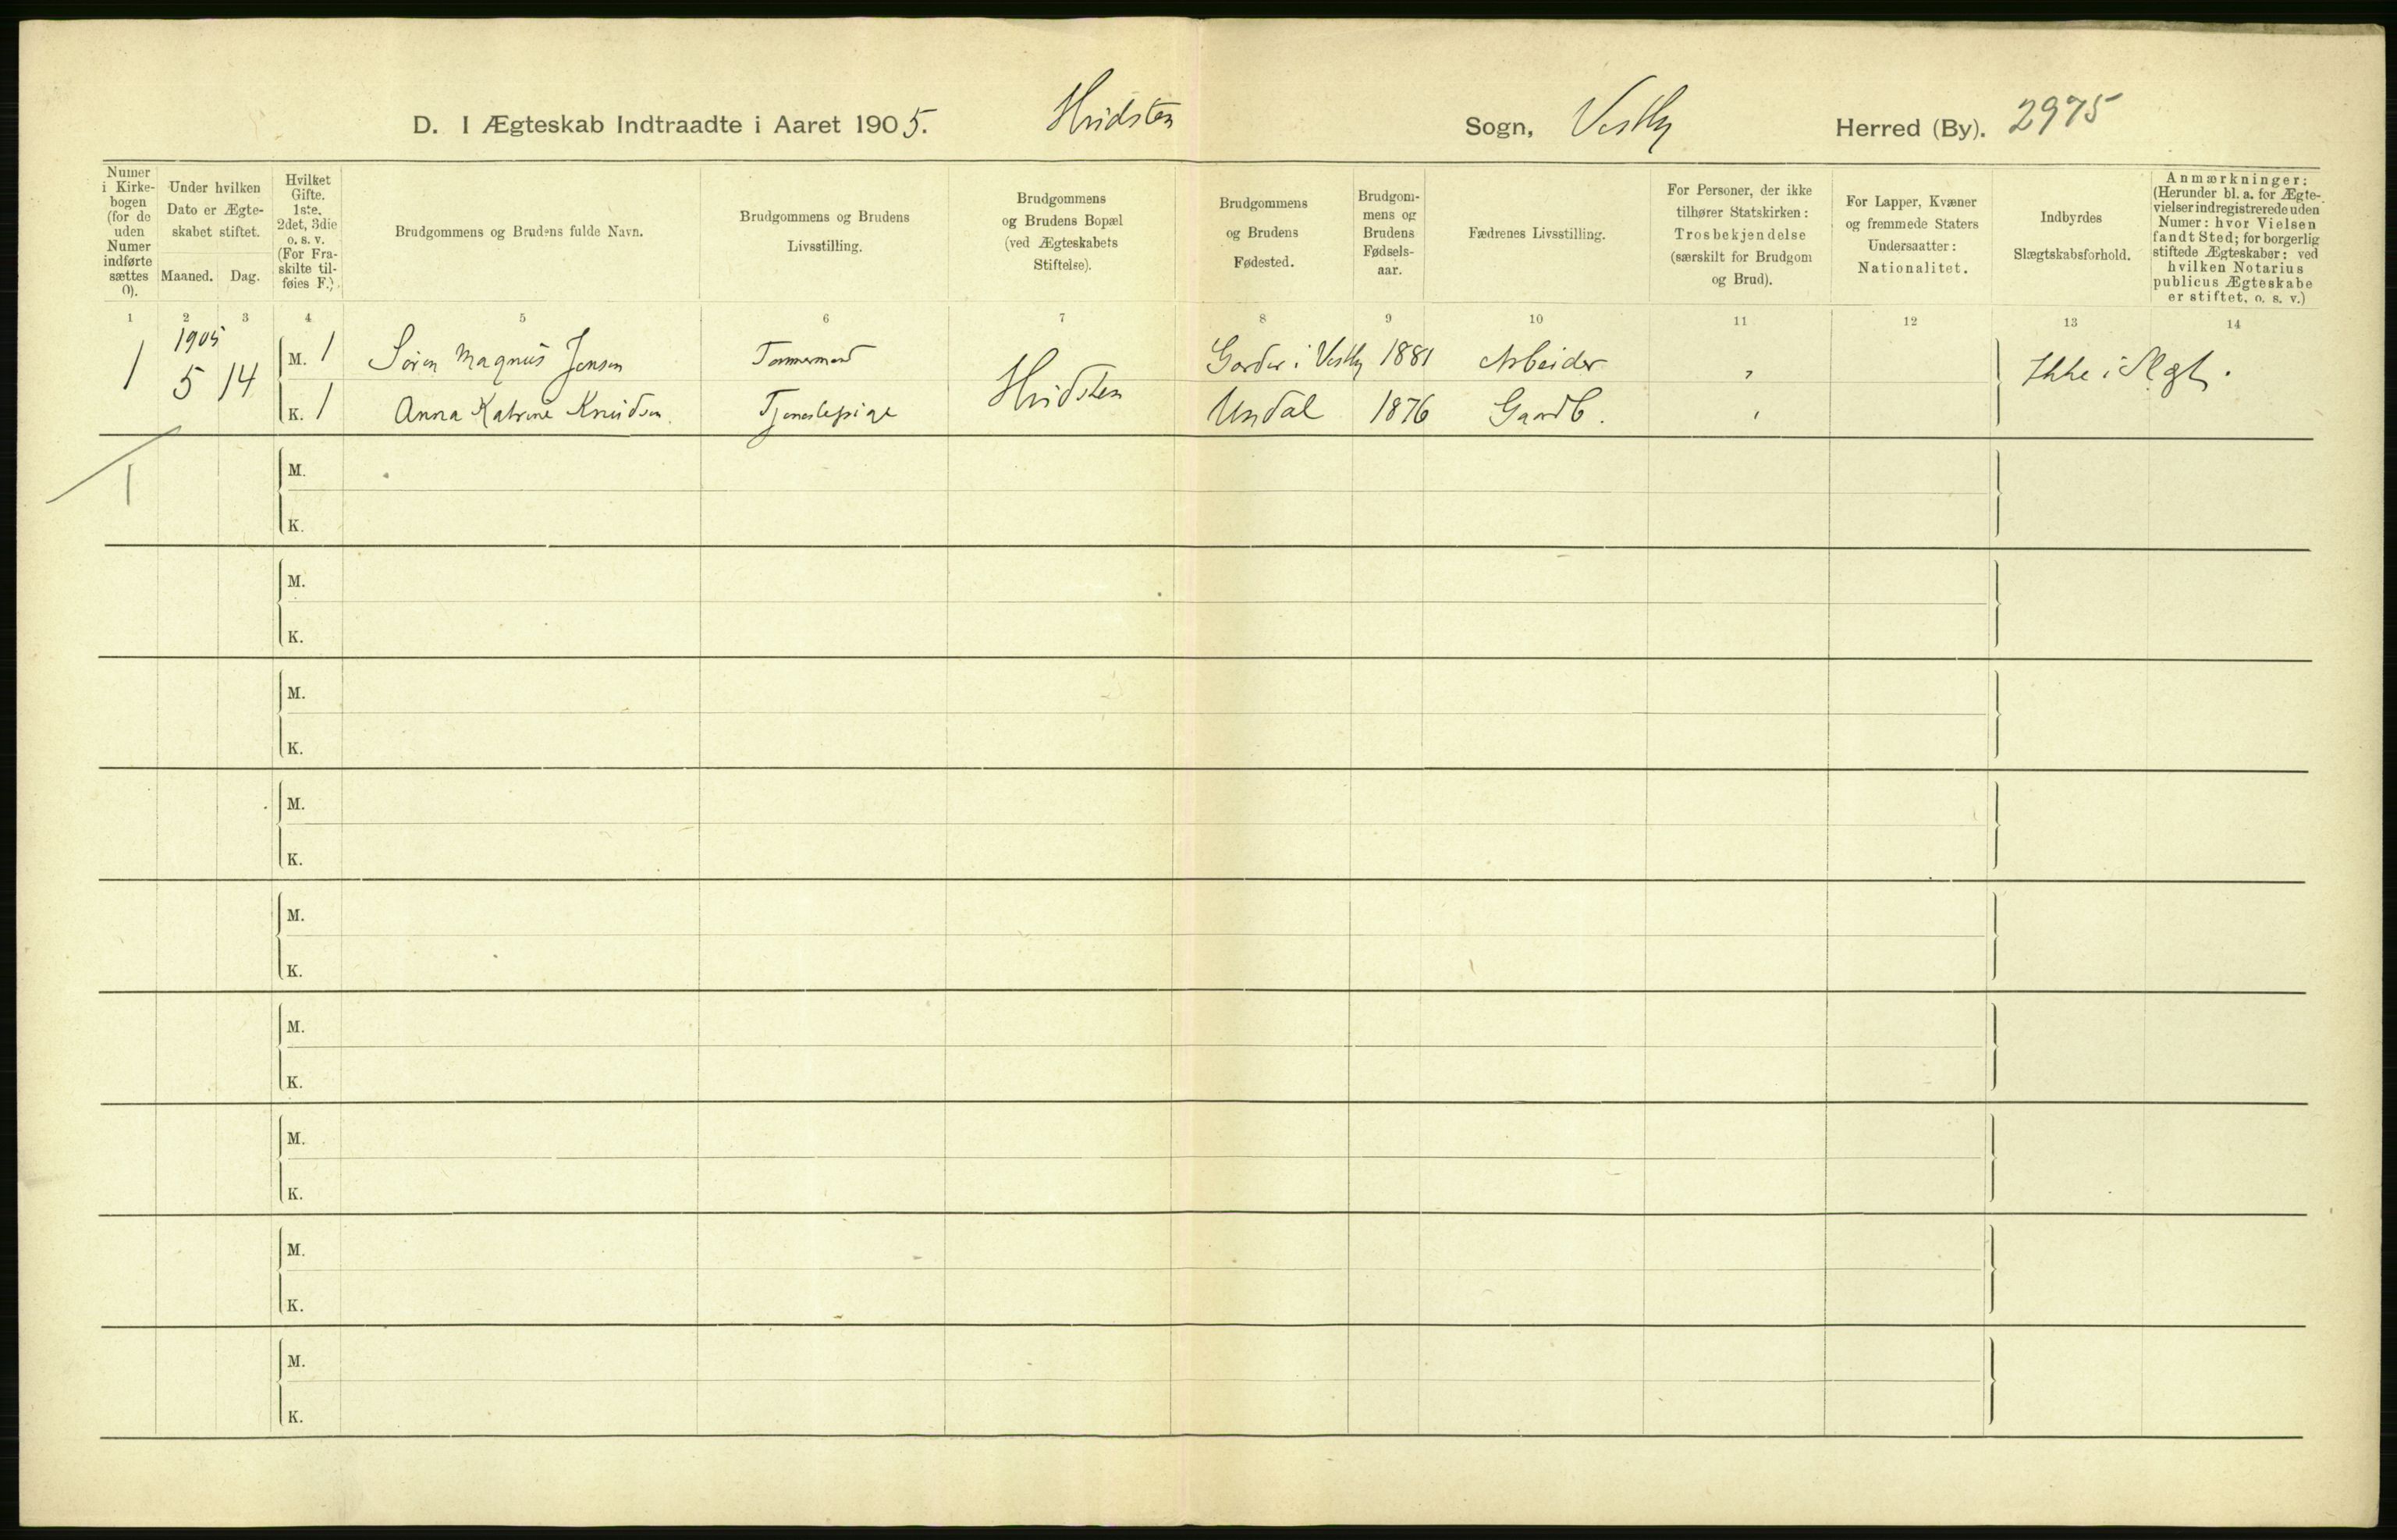 D. I Ægteskab Indtraadte i Aaret 1905. Hvidsten Sogn, Vestby Herred (By). 2975
Numer i Kirke-bogen (for de uden Numer indførte sættes 0).
Under hvilken Dato er Ægte-skabet stiftet.
Maaned. Dag.
Hvilket Gifte. 1ste, 2det, 3die o. s. v. (For Fra-skilte til-føies F.)
Brudgommens og Brudens fulde Navn.
Brudgommens og Brudens Livsstilling.
Brudgommens og Brudens Bopæl (ved Ægteskabets Stiftelse).
Brudgommens og Brudens Fødested.
Brudgom-mens og Brudens Fødsels-aar.
Fædrenes Livsstilling.
For Personer, der ikke tilhører Statskirken: Trosbekjendelse (særskilt for Brudgom og Brud).
For Lapper, Kvæner og fremmede Staters Undersaatter: Nationalitet.
Indbyrdes Slægtskabsforhold.
Anmærkninger: (Herunder bl. a. for Ægte-vielser indregistrerede uden Numer: hvor Vielsen fandt Sted; for borgerlig stiftede Ægteskaber: ved hvilken Notarius publicus Ægteskabe er stiftet, o. s. v.)
1 2 3 4 5 6 7 8 9 10 11 12 13 14
1905
1 5 14 M. 1 Søren Magnus Jensen Tømmermand Hvidsten Garder i Vestby 1881 Arbeider " Ikke i Slgt.
K. 1 Anna Katrine Knudsen Tjenestepige Undal 1876 Gaardb. "
1
M.
K.
M.
K.
M.
K.
M.
K.
M.
K.
M.
K.
M.
K.
M.
K.
M.
K.